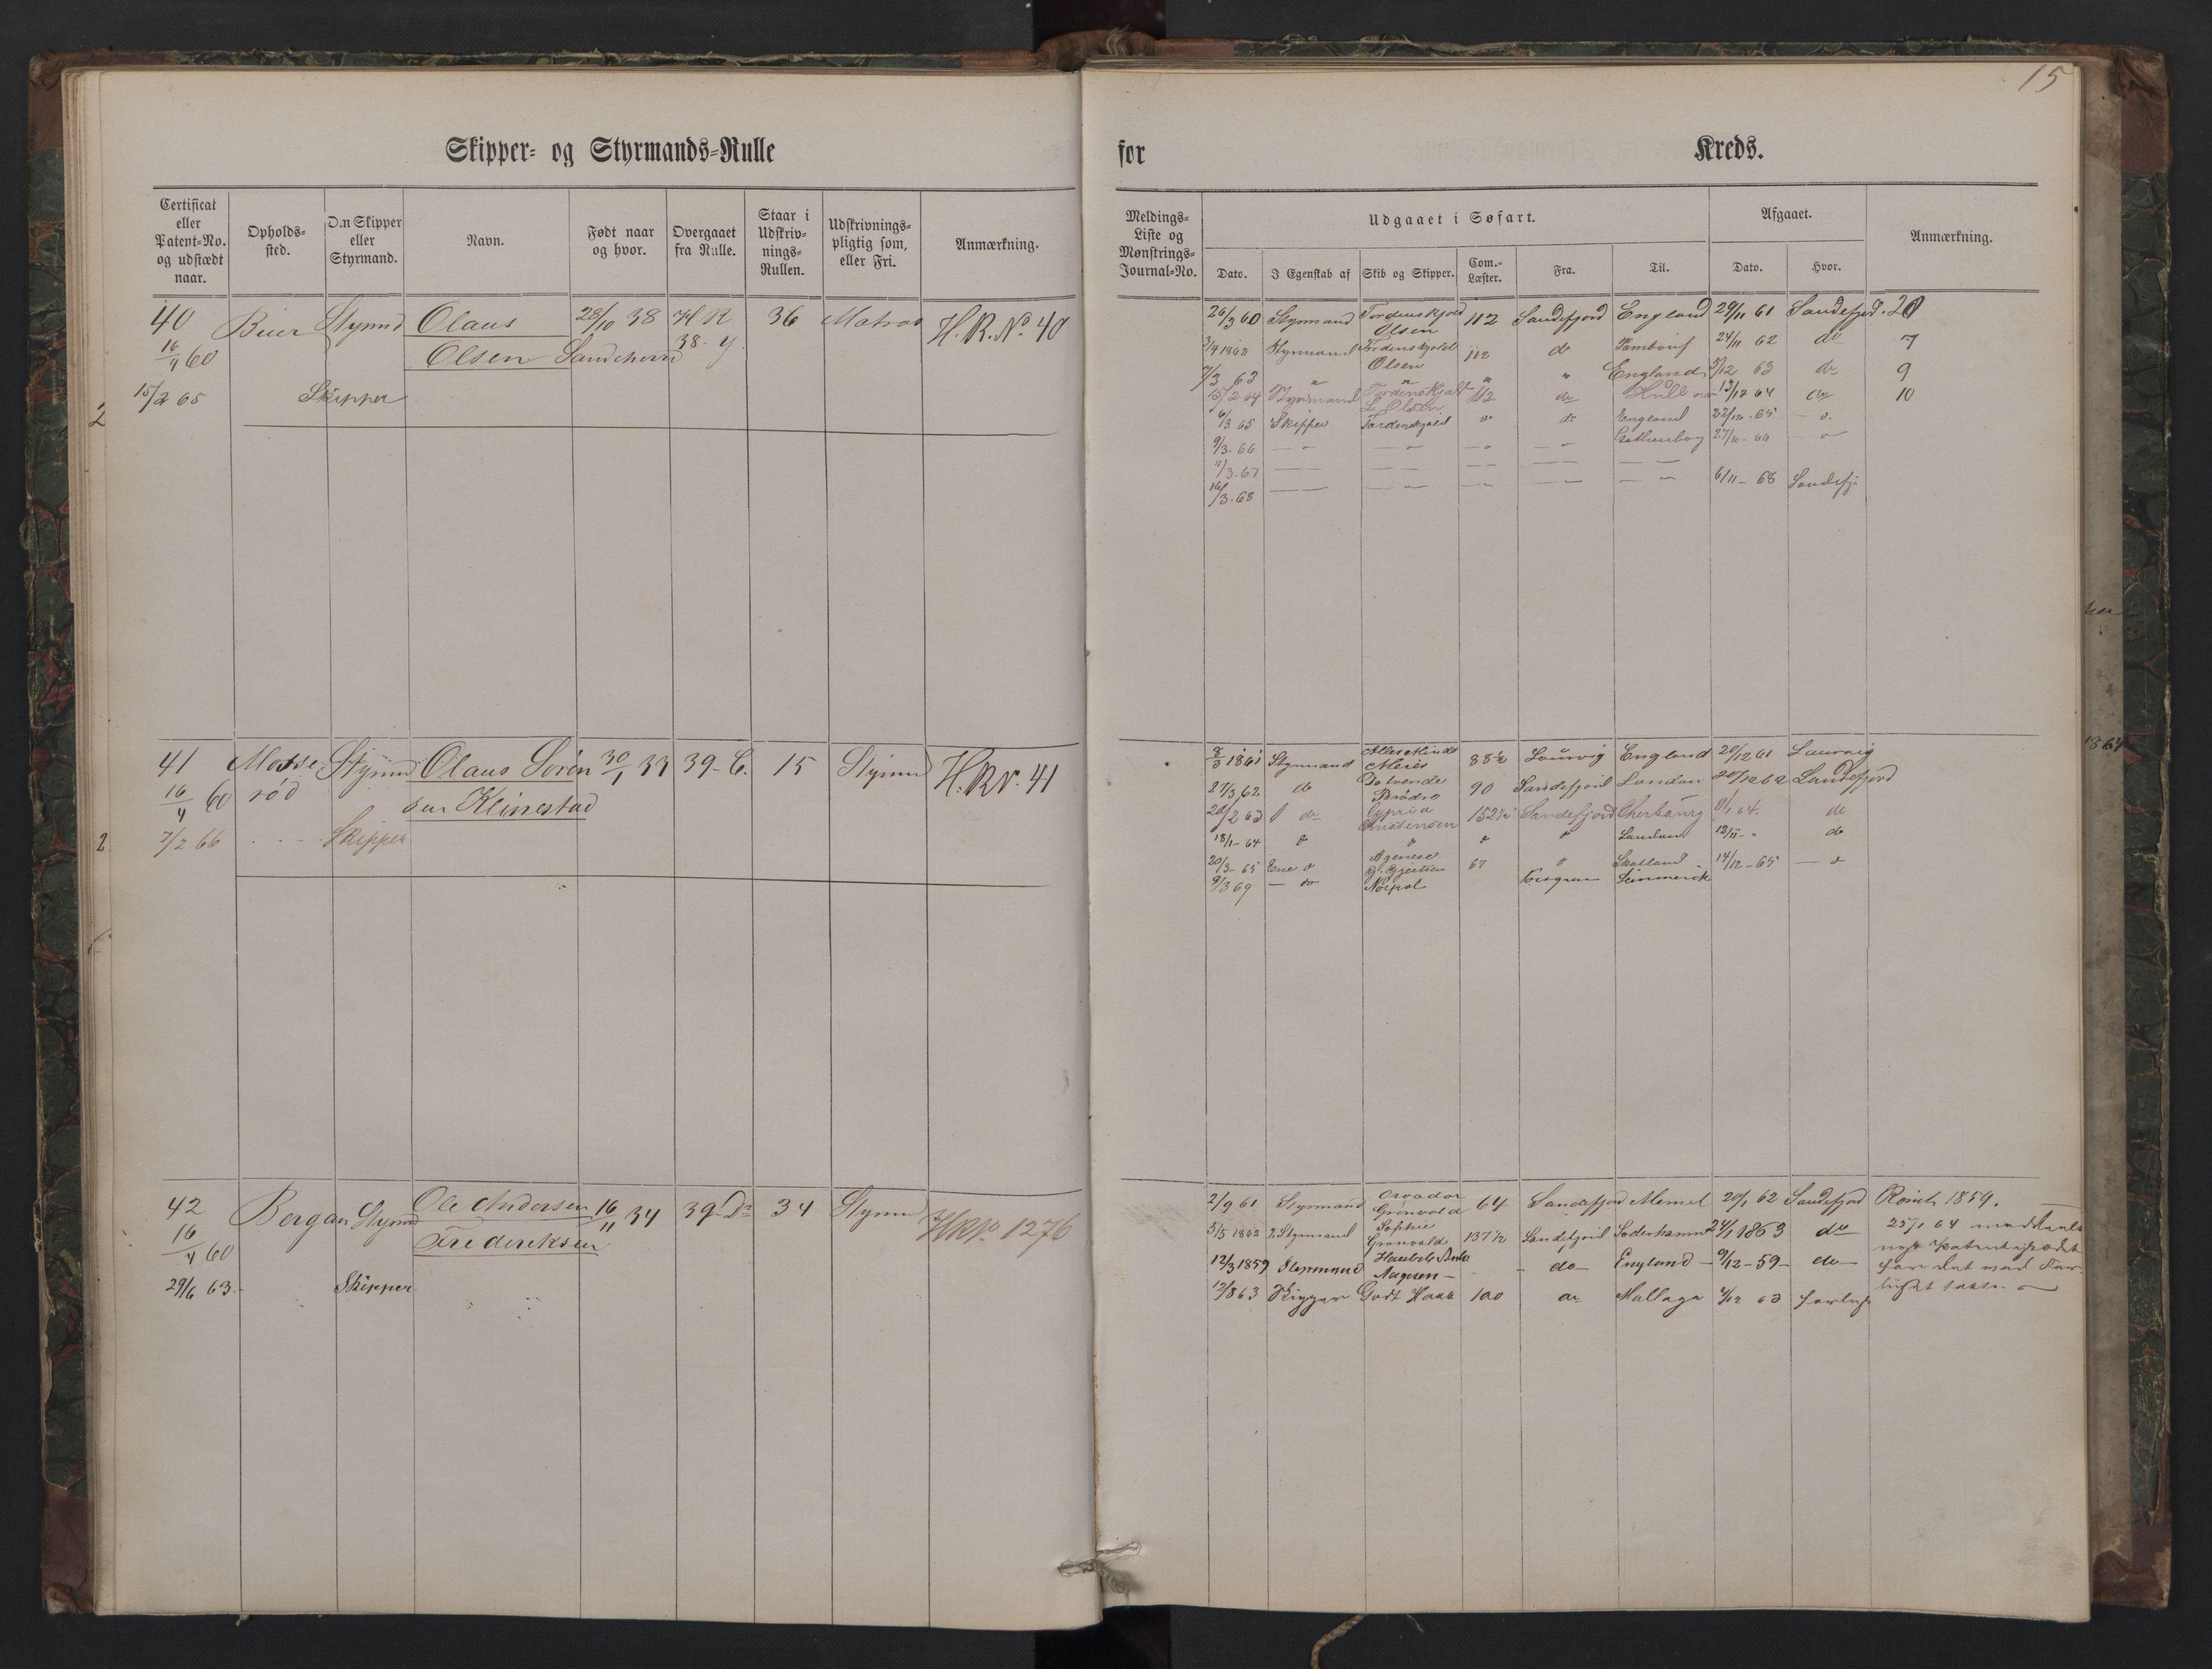 15
Skipper- og Styrmands-Rulle
for Kreds.
Certificat eller Patent-No. og udstædt naar.
Opholds-sted.
Om Skipper eller Styrmand.
Navn.
Født naar og hvor.
Overgaaet fra Rulle.
Staar i Udskriv-nings-Rullen.
Udskrivnings-pligtig som, eller Fri.
Anmærkning.
Meldings-Liste og Mønstrings-Journal-No.
Udgaaet i Søfart.
Dato. I Egenskab af Skib og Skipper. Com.-Læster. Fra. Til.
Afgaaet.
Dato. Hvor.
Anmærkning.
40 Buer Styrmd Olaus 28/10 38 H R 36 Matros H.R.No. 40
16/4 60 Olsen Sandeherred 38-y
15/2 65 Skipper
26/3 60 Styrmand Tordenskjold Olsen 112 Sandefjord England 29/11 61 Sandefjd. 20
3/4 1862 Styrmand Tordenskjold Olsen 112 do 24/11 62 do 7
7/3 63 " " " " England 5/12 63 do 9
15/2 64 Styrmand Tordenskjold L. Olsen 112 do Hull 13/12 64 do 10
6/3 65 Skipper Tordenskjold " do England 22/12-65 - o.
9/3-66 27/10-66
11/3-67
16/3-68 6/11-68 Sandefj.
41 Mosserød Styrmd Olaus Sören 30/1 33 39-C. 15 Styrmd H.R.N. 41
16/4 60 sen Klinestad
7/2 66 Skipper
8/3 1861 Styrmand 88½ Laurvig England 20/12 61 Laurvig
27/3 62 do De tvende Brødre 90 Sandefjord London 20/12 62 Sandefjord
20/2 63 do Cypria Christensen 152½ Sandefjord Cherbourg 8/1 64. do
18/1-64 London 12/11- do
20/3-65 67 Skotland 14/12-65
9/3 69 - do
42 Bergan Styrmd Ole Andersen 16/11 34 39-D 34 Styrmd HRNo 1276
16/4 60 Frederiksen
29/6 63 Skipper
2/9 61 Styrmand Grönvold 64 Sandefjord Memel 20/1 62 Sandefjord 1859.
5/5 1862 2. Styrmand Sophie Grönvold 137½ Sandefjord Söderhamn 24/1 1863 do 25/1 64
12/3 1859 Styrmand Aagesen - do England 9/12-59- do
12/8 63 Skipper Godt Haab 100 do Mallaga 4/12 63
2
2
1864